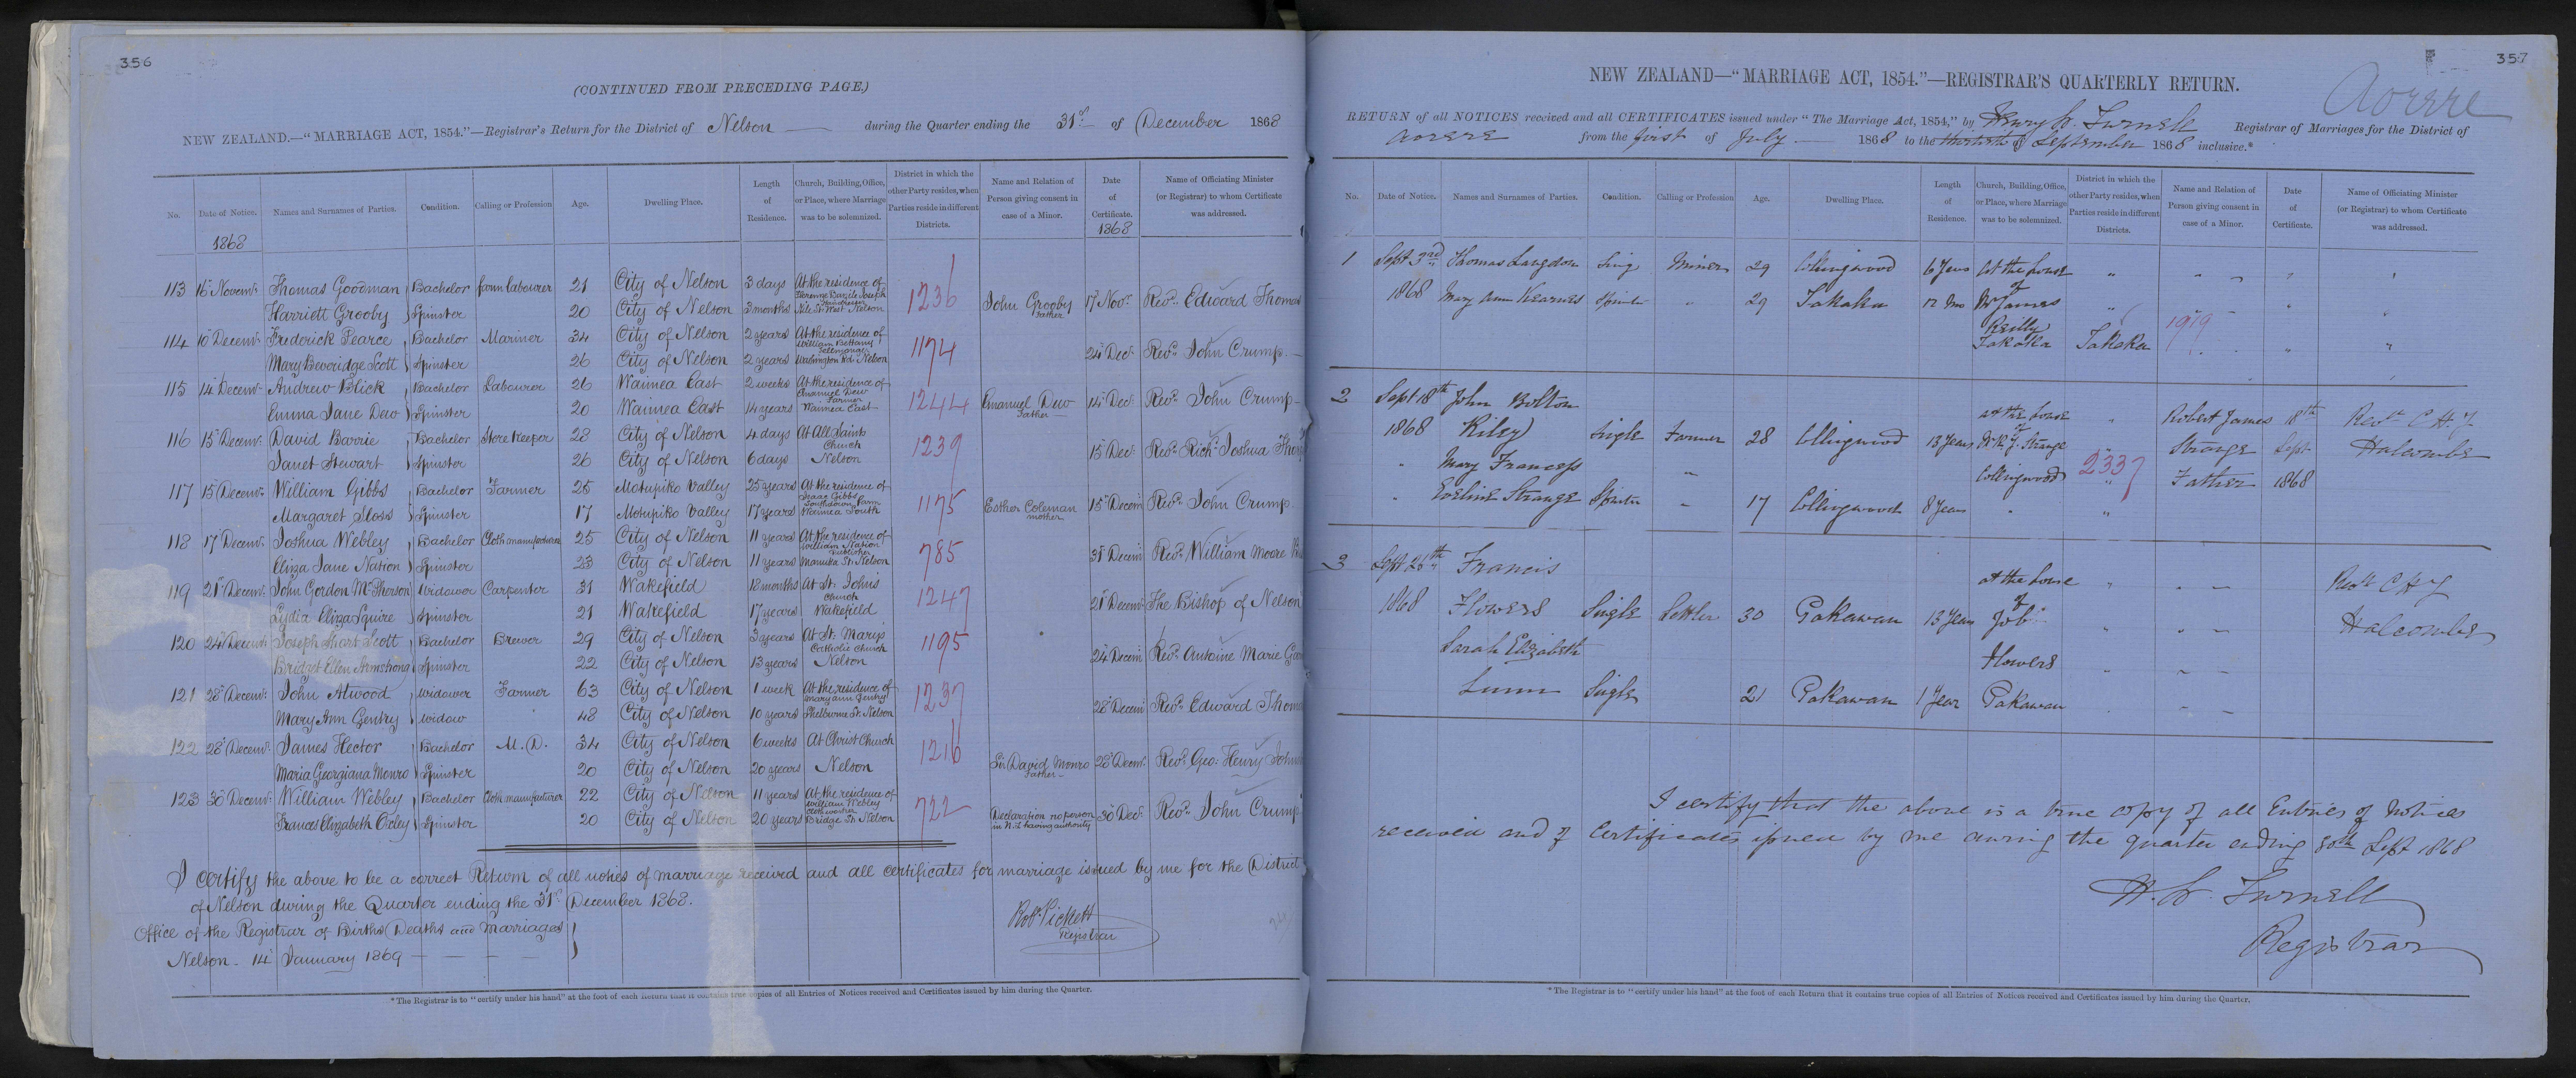 356
(CONTINUED FROM PRECEDING PAGE.)
NEW ZEALAND.—"MARRIAGE ACT, 1854."—Registrar's Return for the District of Nelson during the Quarter ending the 31st of December 1868
No. Date of Notice. Names and Surnames of Parties. Condition. Calling or Profession Age. Dwelling Place. Length of Residence. Church, Building, Office, or Place, where Marriage was to be solemnized. District in which the other Party resides, when Parties reside in different Districts. Name and Relation of Person giving consent in case of a Minor. Date of Certificate. Name of Officiating Minister (or Registrar) to whom Certificate was addressed.
1868 1868
113 16 Novemr. Thomas Goodman Bachelor farm labourer 21 City of Nelson 3 days At the residence of 1236 John Grooby Father 17 Novr. Revd. Edward Thomas
Harriett Grooby Spinster 20 City of Nelson 3 months Nile St West Nelson
114 10 Decemr. Frederick Pearce Bachelor Mariner 34 City of Nelson 2 years At the residence of William Bettany 1174 24 Decr. Revd. John Crump
Mary Beveridge Scott Spinster 26 City of Nelson 2 years Washington Rd. Nelson
115 14 Decemr. Andrew Blick Bachelor Labourer 26 Waimea East 2 weeks At the residence of Emanuel Dew Farmer 1244 Emanuel Dew Father 14 Decr. Revd. John Crump
Emma Jane Dew Spinster 20 Waimea East 14 years Waimea East
116 15 Decemr. David Barrie Bachelor Store Keeper 28 City of Nelson 4 days At All Saints Church 1239 15 Decr. Revd. Richd. Joshua
Janet Stewart Spinster 26 City of Nelson 6 days Nelson
117 15 Decemr. William Gibbs Bachelor Farmer 25 Motupiko Valley 25 years At the residence of Isaac Gibbs 1175 Esther Coleman mother 15 Decemr. Revd. John Crump
Margaret Sloss Spinster 17 Motupiko Valley 17 years Waimea South
118 17 Decemr. Joshua Webley Bachelor Cloth manufacturer 25 City of Nelson 11 years At the residence of William Nation Publisher 785 31 Decemr. Revd. William Moore
Eliza Jane Nation Spinster 23 City of Nelson 11 years Manuka St. Nelson
119 21 Decemr. John Gordon McPherson Widower Carpenter 31 Wakefield 18 months At St. Johns Church 1247 21 Decemr. The Bishop of Nelson
Lydia Eliza Squire Spinster 21 Wakefield 17 years Wakefield
120 24 Decemr. Joseph Short Scott Bachelor Brewer 29 City of Nelson 3 years At St. Marys Catholic Church 1195 24 Decemr. Revd. Antoine Marie
Bridget Ellen Armstrong Spinster 22 City of Nelson 13 years Nelson
121 28 Decemr. John Atwood Widower Farmer 63 City of Nelson 1 week At the residence of Mary Ann Gentry 1237 28 Decemr. Revd. Edward Thomas
Mary Ann Gentry Widow 48 City of Nelson 10 years Shelbourne St. Nelson
122 28 Decemr. James Hector Bachelor M.D. 34 City of Nelson 6 weeks At Christ Church 1216 Sir David Monro Father 28 Decemr. Revd. Geo. Henry
Maria Georgiana Monro Spinster 20 City of Nelson 20 years Nelson
123 30 Decemr. William Webley Bachelor Cloth manufacturer 22 City of Nelson 11 years At the residence of William Webley Clothworker 722 Declaration no person in N.Z. having authority 30 Decr. Revd. John Crump
Frances Elizabeth Oxley Spinster 20 City of Nelson 20 years Bridge St. Nelson
I certify the above to be a correct Return of all notices of marriage received and all certificates for marriage issued by me for the District
of Nelson during the Quarter ending the 31st December 1868.
Robt. Pickett
Registrar
Office of the Registrar of Births Deaths and Marriages
Nelson - 14 January 1869
*The Registrar is to "certify under his hand" at the foot of each Return that it contains true copies of all Entries of Notices received and Certificates issued by him during the Quarter.
357
Aorere
NEW ZEALAND—"MARRIAGE ACT, 1854."—REGISTRAR'S QUARTERLY RETURN.
RETURN of all NOTICES received and all CERTIFICATES issued under "The Marriage Act, 1854," by Henry W. Turnell Registrar of Marriages for the District of
Aorere from the first of July 1868 to the thirtieth of September 1868 inclusive.*
No. Date of Notice. Names and Surnames of Parties. Condition. Calling or Profession Age. Dwelling Place. Length of Residence. Church, Building, Office, or Place, where Marriage was to be solemnized. District in which the other Party resides, when Parties reside in different Districts. Name and Relation of Person giving consent in case of a Minor. Date of Certificate. Name of Officiating Minister (or Registrar) to whom Certificate was addressed.
1 Sept 3rd Thomas Langdon Sing Miner 29 Collingwood 6 Years at the house
1868 Mary Ann Kearnes Spinster " 29 Takaka 12 Mo of Mr James
Reilly 1919
Takaka Takaka
2 Sept 18th John Bolton at the house Robert James 18th Revd C H J
1868 Riley Single Farmer 28 Collingwood 13 Years of Mr R. J. Strange Strange Sept Halcombe
Mary Francess Collingwood 2337 Father 1868
Eveline Strange Spinster - 17 Collingwood 8 Years
3 Sept 26th Francis at the house Revd C H J
1868 Flowers Single Settler 30 Pakawau 13 Years of Job Halcombe
Sarah Elizabeth Flowers
Lunn Single 21 Pakawau 1 Year Pakawau
I certify that the above is a true copy of all Entries of Notices
received and of Certificates issued by me during the quarter ending 30th Sept 1868
H. W. Turnell
Registrar
*The Registrar is to "certify under his hand" at the foot of each Return that it contains true copies of all Entries of Notices received and Certificates issued by him during the Quarter.